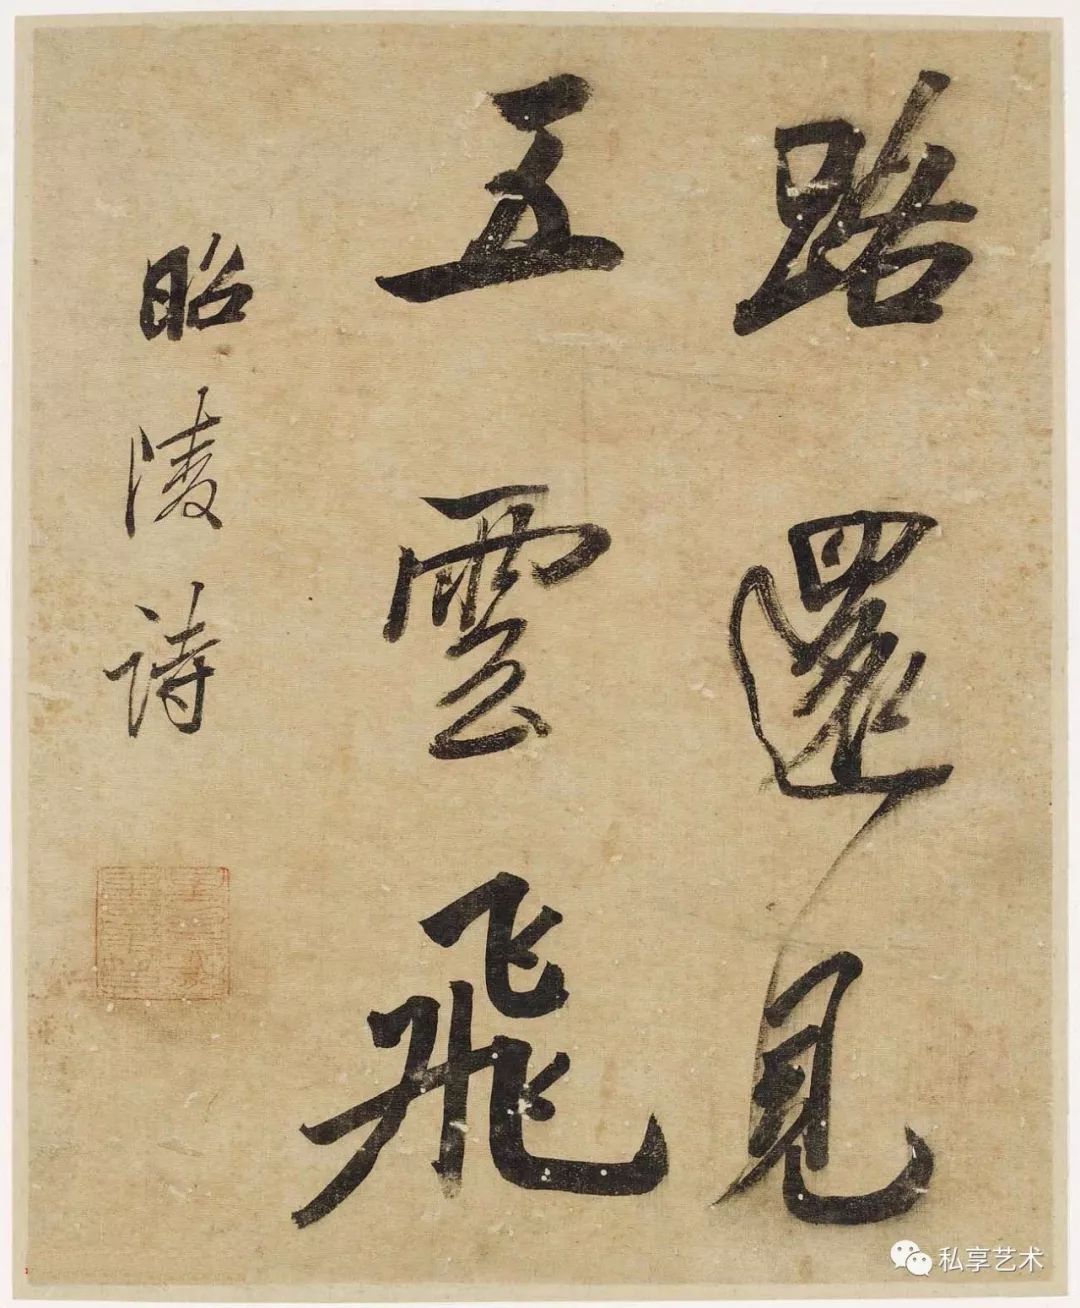 路還見
五雲飛
昭陵詩
私享艺术